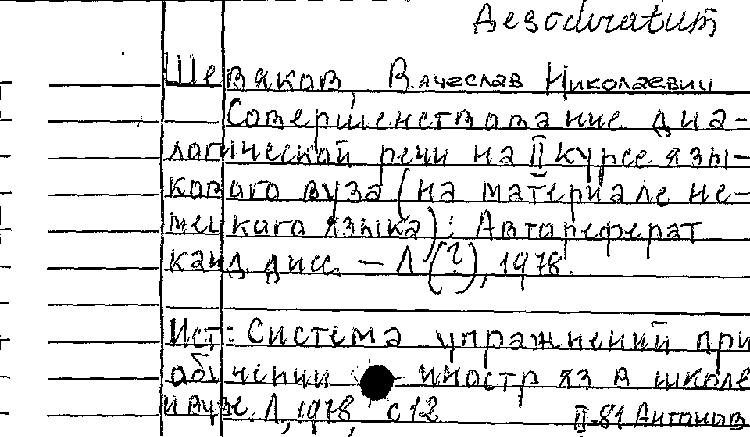 Desideratum
Шеваков, Вячеслав Николаевич
Совершенствование диа-
логической речи на II курсе язы-
кового вуза (на материале не-
мецкого языка): Автореферат
канд дисс. – Л (?), 1978.
Ист: Система упражнений при
обучении иностр яз в школе
и вузе. Л, 1978, с 12
II-81 Антонов